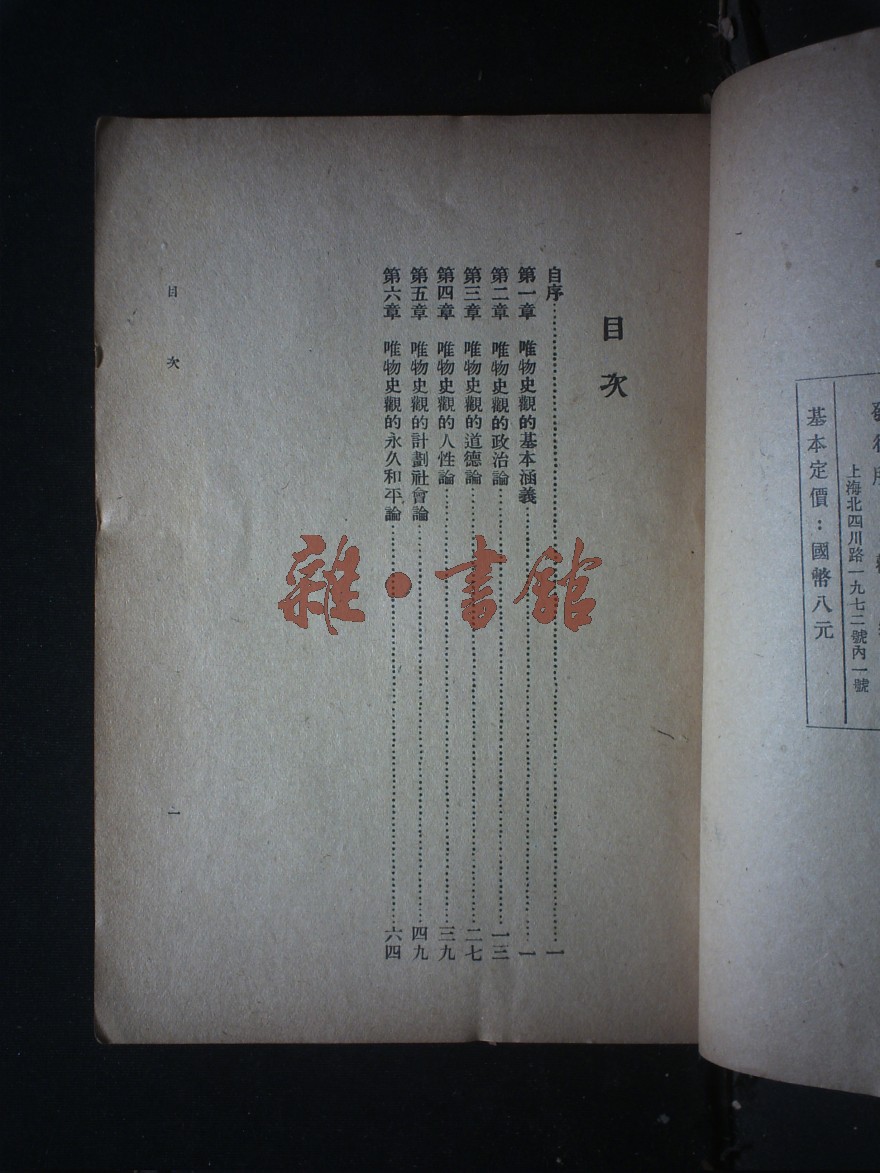 基本定價：國幣八元
上海北四川路一九七二號內一號
目次
自序……一
第一章 唯物史觀的基本涵義……一
第二章 唯物史觀的政治論……一三
第三章 唯物史觀的道德論……二七
第四章 唯物史觀的人性論……三九
第五章 唯物史觀的計劃社會論……四九
第六章 唯物史觀的永久和平論……六四
目次
一
雜·書館